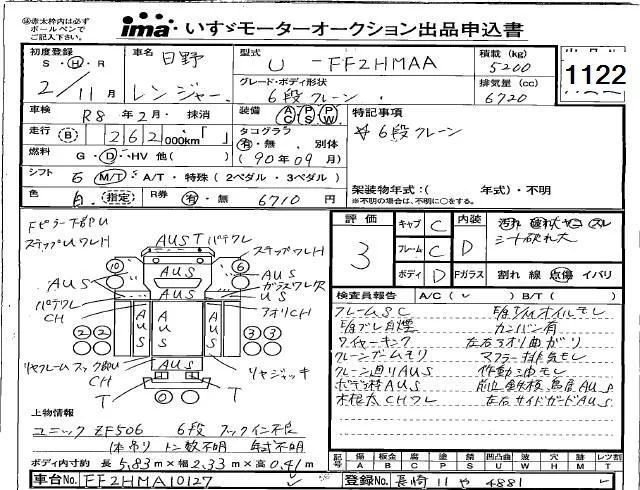 ※赤太枠内は必ず
ボールペンで
ご記入下さい。
ima いすゞモーターオークション出品申込書
初度登録
S・H・R
2/11月
車名
日野
レンジャー
型式
U-FF2HMAA
グレード・ボディ形状
6段クレーン
積載(kg)
5200
排気量(cc)
6720
1122
車検 R8年2月・抹消
装備 AC PS PW
走行 B 262,000km「 」
タコグラフ
有・無 別体
(90年09月)
燃料 G・D・HV 他( )
シフト 6 M/T・A/T・特殊(2ペダル・3ペダル)
色 白 指定 R券 有・無 6710円
特記事項
☆6段クレーン
架装物年式:( 年式)・不明
※不明の場合は、不明に○をする。
Fピラー下部U
ステップUワレH
AUSTバケワレ
ステップワレH
10
6
AUS
AUS
AUS
ガラスワレ欠
US
バケワレ
CH
アオリCH
AUS
AUS
AUS
2 2
3 3
リヤフレームフック部U
CH
AUS
リヤジャッキ
T
T
0
評価
3
キャブ C
フレーム C
ボディ D
内装 D
汚れ 破れ ヤニ スレ
シート破れ大
Fガラス 割れ 線 点傷 イバリ
検査員報告 A/C( ✓ ) B/T( )
フレームSC
E/gオイルモレ
E/gブレ白煙
カンバン有
ワイヤーキンク
左右アオリ曲がり
クレーンブームモリ
マフラー排気モレ
クレーン廻りAUS
作動油モレ
ボデー材AUS
根太CHワレ
左右サイドガードAUS
上物情報
ユニック ZF506 6段 フックイン不良
1本吊り トン数不明 年式不明
ボディ内寸約 長5.83m×幅2.33m×高0.41m
記号 傷A 板金B 腐C 塗P 錆S 凹凸曲U 波W 穴H 跡M レツ割T
車台No. FF2HMA10127
登録No. 長崎11や4881